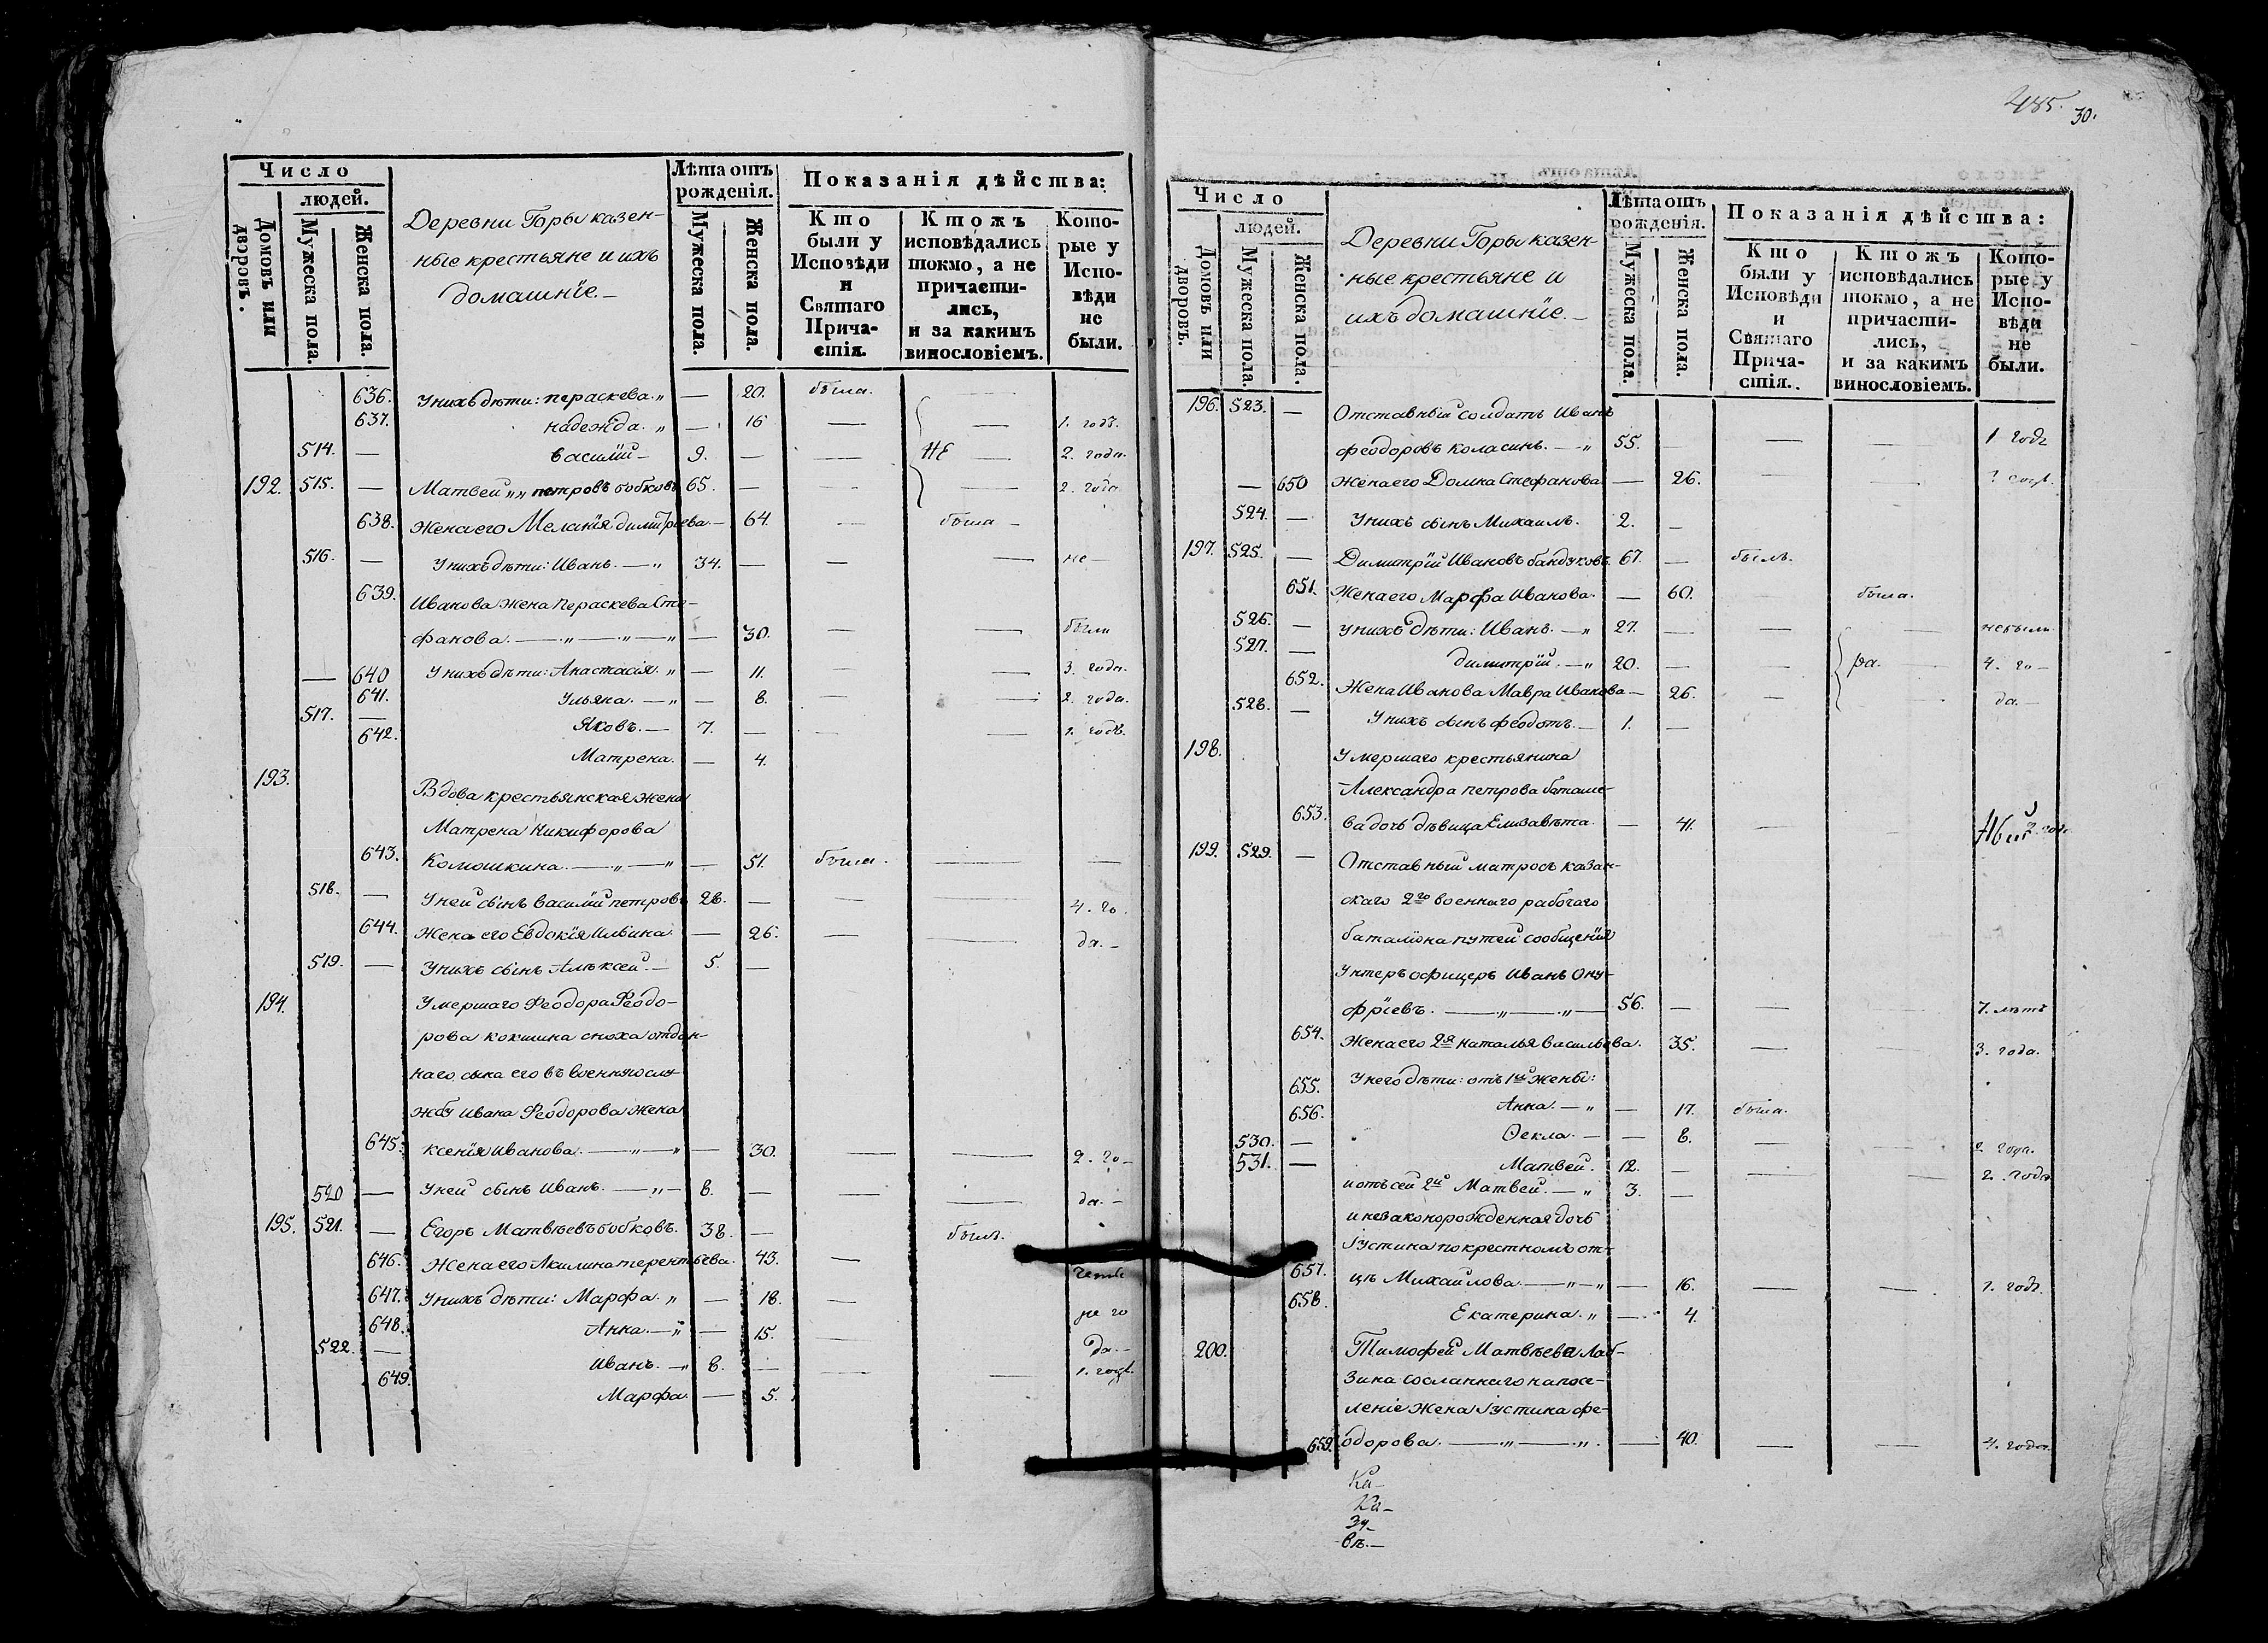 485. 30.
Число
людей.
Домовъ или дворовъ.
Мужеска пола.
Женска пола.
Деревни Горы казен-
ные крестьяне и ихъ
домашнїе.-
Лѣта отъ рожденія.
Мужеска пола.
Женска пола.
Показанія дѣйства:
Кто были у Исповѣди и Святаго Прича-стія.
Ктожъ исповѣдались токмо, а не причасти-лись, и за какимъ винословіемъ.
Кото-рые у Испо-вѣди не были.
636. У нихъ дѣти: пераскева. „ — 20. была.
637. надежда. „ — 16 — — 1. годъ.
514. — василїй — 9. — — НЕ — 2. года.
192. 515. — Матвей „ „ петровъ бобковъ 65. — — — 2. года
638. жена его Меланїя димитрїева. — 64. — была —
516. — У нихъ дѣти: Иванъ. — „ 34. — — — не —
639. Иванова жена Пераскева Сте-
фанова. — „ — „ — „ — 30. — — были
— 640 У нихъ дѣти: Анастасія. „ — 11. — 3. года.
641. Ульяна. — „ — 8. — — 2. года.
517. — Яковъ. — 7. — — — 1. годъ.
642. Матрена. — 4.
193. Вдова крестьянская жена
Матрена Никифорова
643. Комошкина. — „ — „ — 51. была. — —
518. — У ней сынъ василїй петровъ 28. — — — 4. го.
644. Жена его Евдокїя Ильина — 26. — — да. -
519. — У нихъ сынъ Алѣксей. — 5. —
194. Умершаго Феодора Феодо-
рова кокшина сноха отдан-
наго сына его въ военную слу-
жбу ивана Феодорова жена
645. ксенїя иванова. — „ — „ — 30. — — 2. го-
520 — У ней сынъ Иванъ. — „ — 8. — — — да. -
195. 521. — Егоръ Матвѣевъ бобковъ. 38. — былъ.
646. Жена его Акилина терентьева. 43. —
647. У нихъ дѣти: Марфа. „ — 18. —
648. Анна. — „ — 15. — да. -
522. — Иванъ. — „ 8. — — — 1. годъ.
649. Марфа. — 5.
Число
людей.
Домовъ или дворовъ.
Мужеска пола.
Женска пола.
Деревни Горы казен-
ные крестьяне и
ихъ домашнїе.-
Лѣта отъ рожденія.
Мужеска пола.
Женска пола.
Показанія дѣйства:
Кто были у Исповѣди и Святаго Прича-стія.
Ктожъ исповѣдались токмо, а не причасти-лись, и за какимъ винословіемъ.
Кото-рые у Испо-вѣди не были.
196. 523. — Отставный солдатъ Иванъ
феодоровъ коласинъ. — „ 55. — — — 1 годъ
— 650 жена его Домна Стефанова — 26. — —
524. — У нихъ сынъ Михаилъ. 2. —
197. 525. — Димитрїй Ивановъ бандуковъ. 67. — былъ.
651. Жена его Марфа Иванова. — 60. была.
526. — У нихъ дѣти: Иванъ. — „ 27. — — — небыли
527. — димитрїй. — „ 20. — — ра. — 4. го —
652. Жена Иванова Мавра Иванова — 26. — — да. —
528. — У нихъ сынъ Феодотъ. — 1. —
198. Умершаго крестьянина
Александра петрова баташе-
653. ва дочь дѣвица Елизавѣта. — 41. —
199. 529. — Отставный матросъ казан-
скаго 2го военнаго рабочаго
баталїона путей сообщенїя
Унтеръ офицеръ Иванъ Ону-
фрїевъ. — „ — „ — 56. — — — 7. лѣтъ
654. Жена его 2я наталья васильева. 35. — — 3. года.
655. У него дѣти: отъ 1й жены:
656. Анна. — „ — 17. была.
530. — Ѳекла. — — 8. — — 2 года.
531. — Матвей. 12. — — — 2. года
и отъ сей 2й Матвей. — „ 3. —
и незаконорожденная дочь
Іустина по крестномъ от-
657. цѣ Михайлова. — „ — „ — 16. — — 1. годъ.
658. Екатерина. „ — 4.
200. Тимофей Матвѣева Лаб-
зина сосланнаго на посе-
ленїе жена Іустина фе-
659. одорова. — „ — „ . — 40. — — 4. года.
Ка-
Ка-
зу-
въ.—